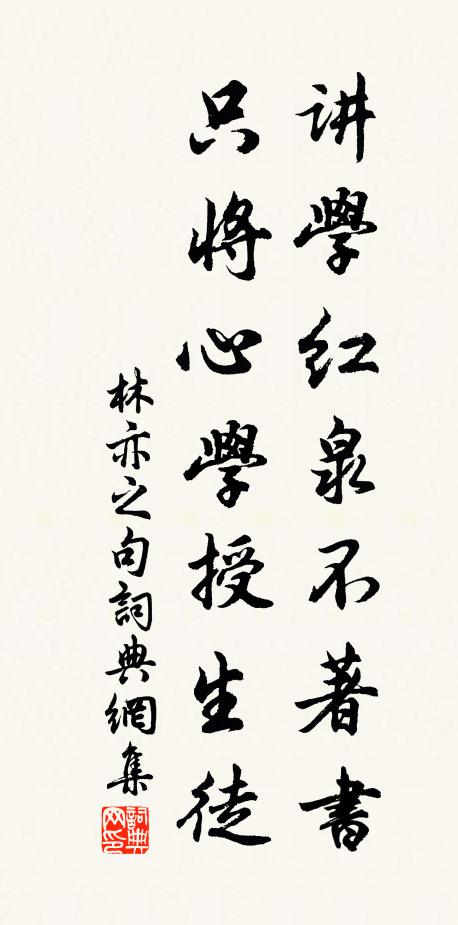 讲學红泉不著書
只將心學授生徒
林亦之句詞典網集
詞典网印